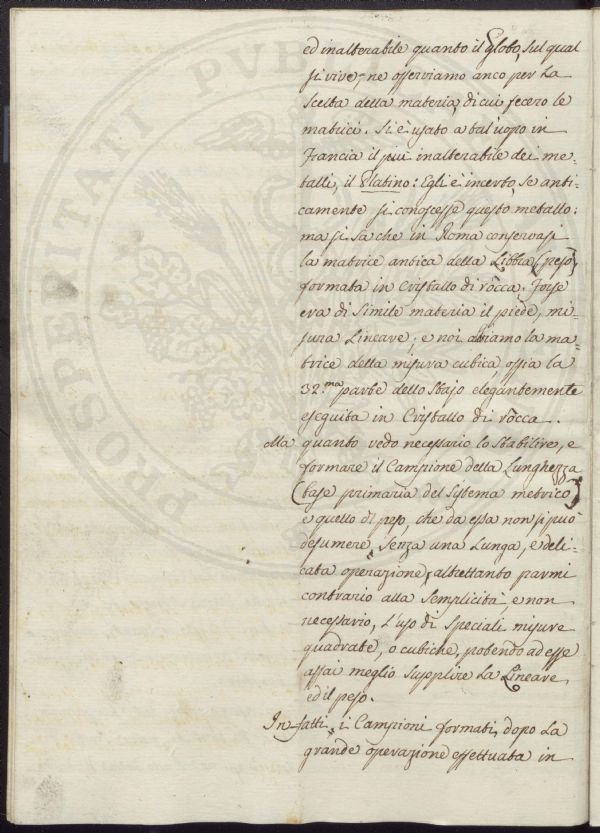 PROSPERITATI PVBLI
ed inalterabile quanto il Globo, sul qual
si vive; ne osserviamo anco per la
Scelta della materia, di cui fecero le
matrici. Si è usato a tal'uopo in
Francia il più inalterabile dei me-
talli, il Platino: Egli è incerto, se anti-
camente si conoscesse questo metallo:
ma si sa che in Roma conservasi
la matrice antica della Libbra (peso)
formata in Cristallo di ròcca. Forse
era di simile materia il piede, mi-
sura Lineare; e noi abbiamo la ma-
trice della misura cubica, ossia la
32.ma parte dello Stajo elegantemente
eseguita in Cristallo di ròcca..
Ma quanto vedo necessario lo Stabilire, e
formare il Campione della Lunghezza
(base primaria del Sistema metrico)
e quello di peso, che da essa non si può
desumere, senza una Lunga, e deli-
cata operazione, altrettanto parmi
contrario alla Semplicità, e non
necessario, l'uso di Speciali misure
quadrate, o cubiche, potendo ad esse
assai meglio supplire la Lineare
ed il peso.
In fatti, i Campioni formati, dopo la
grande operazione effettuata in